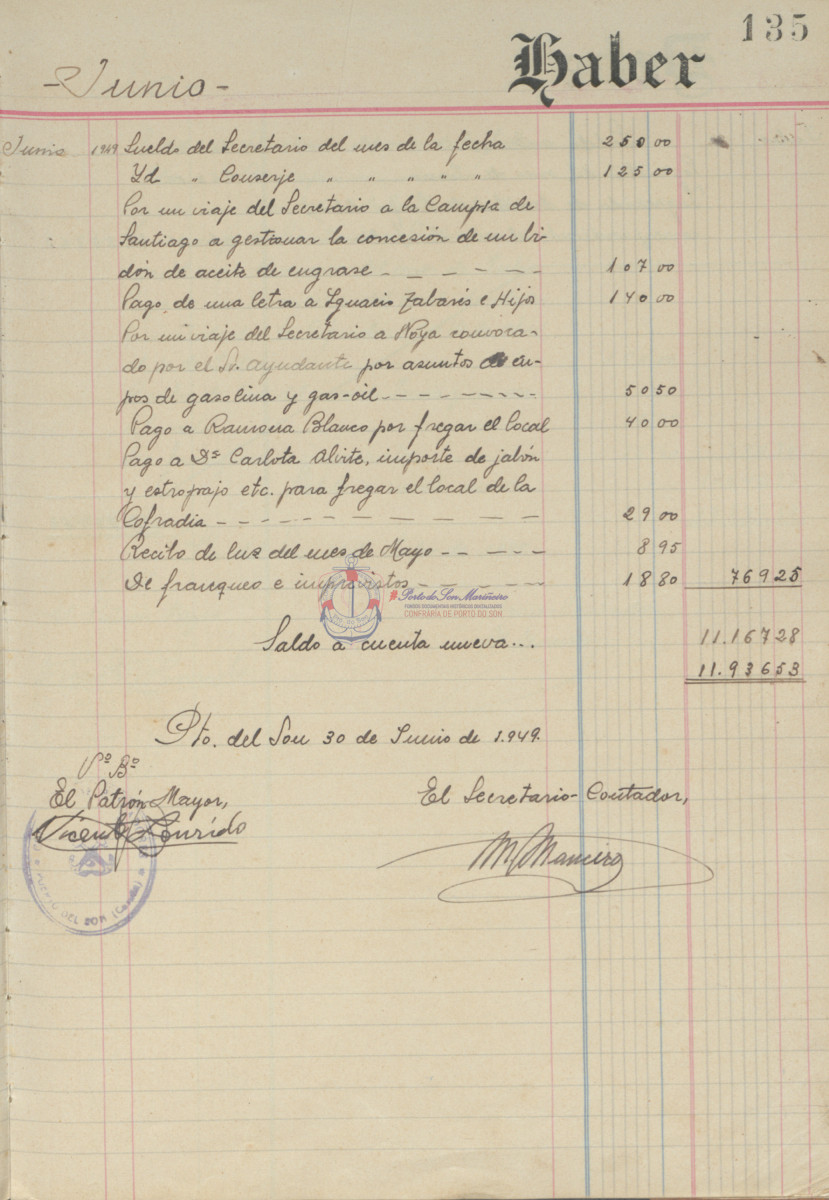 135
-Junio-
Haber
Junio 1949 Sueldo del Secretario del mes de la fecha 250 00
Yd " Conserje " " " " " 125 00
Por un viaje del Secretario a la Campsa de
Santiago a gestionar la concesión de un bi-
dón de aceite de engrase - - - - - 107 00
Pago de una letra a Ygnacio Zabarés e Hijos 140 00
Por un viaje del Secretario a Noya convoca-
do por el Sr. Ayudante por asuntos de cu-
pos de gasolina y gas-oil - - - - - - - - 50 50
Pago a Ramona Blanco por fregar el local 40 00
Pago a Dª Carlota Alvite, importe de jabón
y estropajo etc. para fregar el local de la
Cofradia - - - - - - - - - 29 00
Recibo de luz del mes de Mayo - - - - 8 95
De franqueo e imprevistos - - - - - 18 80 769 25
#PortodoSonMariñeiro
CONFRARÍA DE PORTO DO SON
Saldo a cuenta nueva... 11.167 28
11.936 53
Pto. del Son 30 de Junio de 1.949.
Vº Bº
El Patrón Mayor,
El Secretario-Contador,
Vicente
M. Maneiro
PUERTO DEL SON